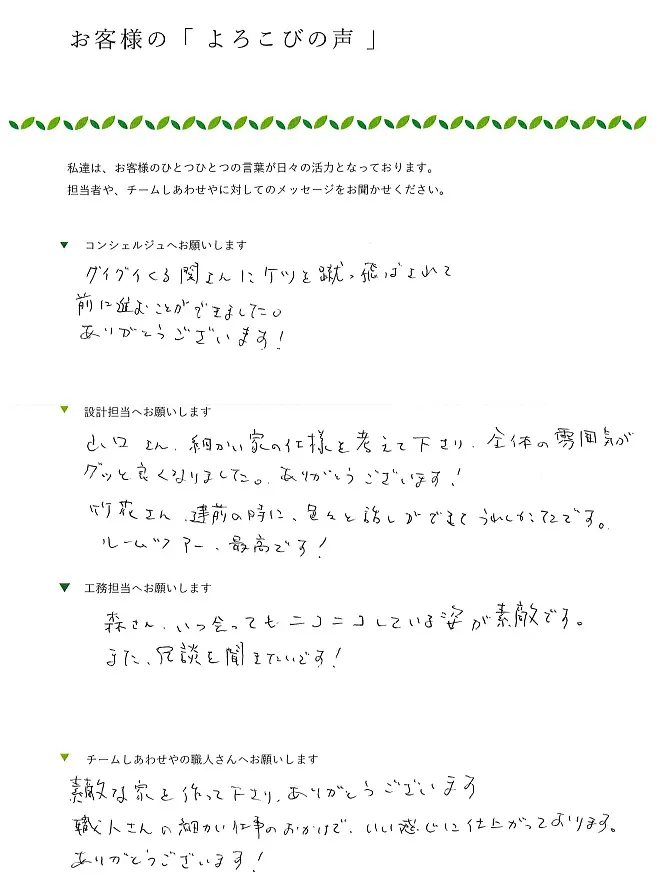 お客様の「 よろこびの声 」
私達は、お客様のひとつひとつの言葉が日々の活力となっております。
担当者や、チームしあわせやに対してのメッセージをお聞かせください。
▼ コンシェルジュへお願いします
グイグイくる関さんにケツを蹴っ飛ばされて
前に進むことができました。
ありがとうございます!
▼ 設計担当へお願いします
山口さん、細かい家の仕様を考えて下さり、全体の雰囲気が
グッと良くなりました。ありがとうございます!
竹花さん、建前の時に、色々と話しができてうれしかったです。
ルームツアー、最高です!
▼ 工務担当へお願いします
森さん、いつ会ってもニコニコしている姿が素敵です。
また、冗談を聞きたいです!
▼ チームしあわせやの職人さんへお願いします
素敵な家を作って下さり、ありがとうございます
職人さんの細かい仕事のおかげで、いい感じに仕上がっております。
ありがとうございます!